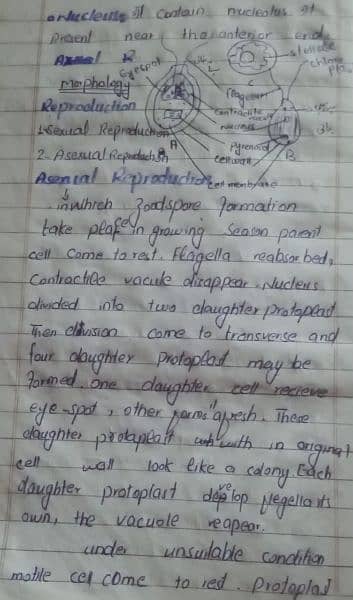 Nucleus it contain nucleolus it
present near the anterior end
Eyespot
flagellum
contractile
nucleus
pyrenoid
cell wall
cell membrane
A
B
Morphology
Reproduction
1. Sexual Reproduction
2. Asexual Reproduction
Asexual Reproduction
in which zoodspore formation
take place in growing season parent
cell come to rest. Flagella reabsorbed,
contractile vacule disappear. Nucleus
divided into two daughter protoplast
Then division come to transverse and
four daughter protoplast may be
formed. one daughter cell recieve
eye-spot, other forms afresh. These
daughter protoplast with in original
cell wall look like a colony. Each
daughter protoplast develop flegella its
own, the vacuole reapear.
under unsuitable condition
motile cel come to red. Protoplad